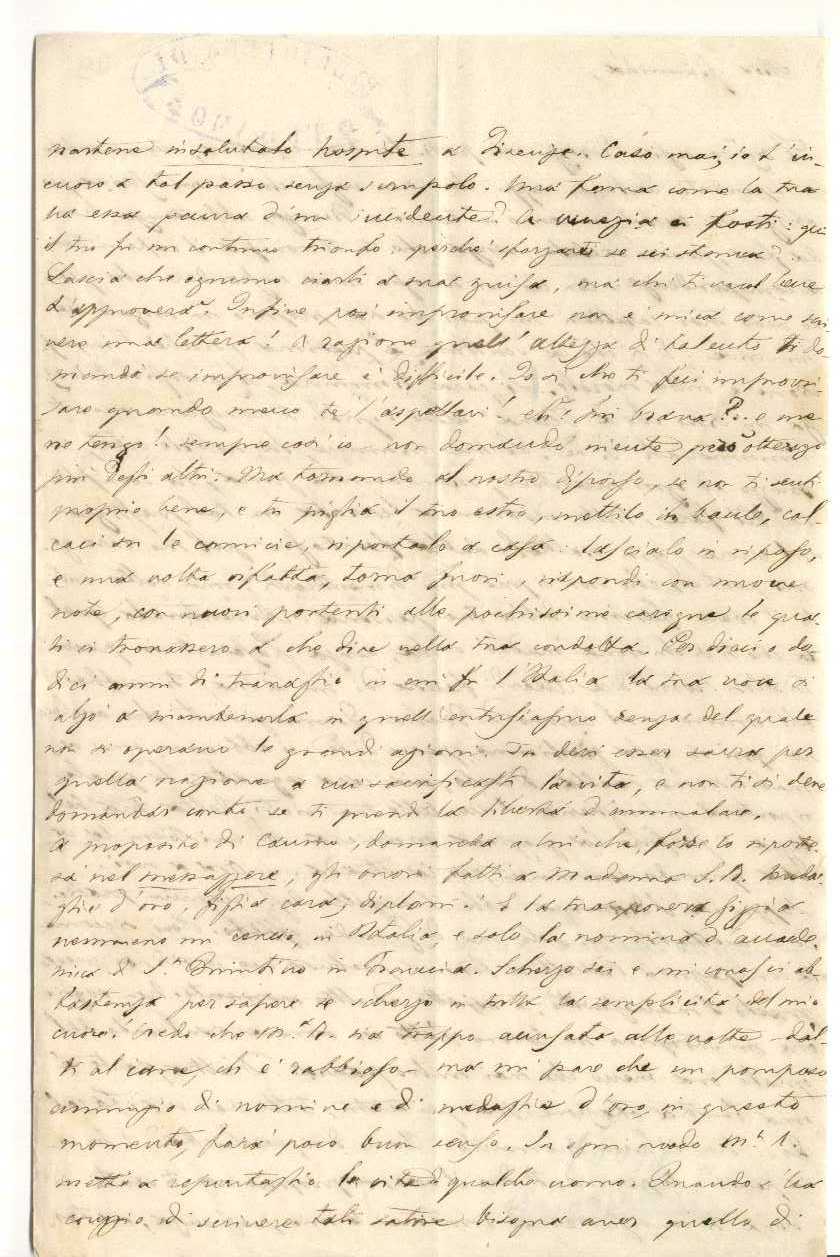 partene insalutato hospite a Firenze. Caso mai, io t'in-
cuoro a tal passo senza scrupolo. Ma fama come la tua
ha essa paura d'un incidente? A Venezia ci fosti: qui
il tuo fu un continuo trionfo, perchè sforzarti se sei stanca?
Lascia che ognuno ciarli a sua guisa, ma chi ti vuol bene
t'approverà. Infine, poi improvisare non è mica come scri-
vere una lettera! A ragione quell'altezza di talento ti do-
mandò se improvisare è difficile. Io sì che ti feci improvi-
sare quando meno te l'aspettavi! eh! fui brava?.. e me
ne tengo! sempre così io non domando niente però ottengo
più degli altri. Ma tornando al nostro discorso, se non ti senti
proprio bene, e tu piglia il tuo estro, mettilo in baule, cal-
caci su le camicie, riportalo a casa: lascialo in riposo,
e una volta rifatta, torna fuori, rispondi con nuove
note, con nuovi portenti alle pochissime carogne le qua-
li ci trovassero a che dire nella tua condotta. Per dieci o do-
dici anni di travaglio in cui fu l'Italia la tua voce si
alzò a mantenerla in quell'entusiasmo senza del quale
non si operano le grandi azioni. Tu devi esser sacra per
quella nazione a cui sacrificasti la vita, e non ti si deve
domandar conto se ti prendi la libertà d'ammalare.
A proposito di
domanda a lui che, forse lo riporte-
rà nel messaggere, gli onori fatti a Madama S. B. meda-
glie d'oro, figlia cara, diplomi! E la tua povera
nemmeno un cencio, in Italia, e solo la nomina d'accade-
mica di S.n Quintino in Francia. Scherzo sai e mi conosci ab-
bastanza per sapere se scherzo in tutta la semplicità del mio
cuore! Credo che M.a B. sia troppo accusata alle volte dal-
ti al cane, ch'è rabbioso ma mi pare che un pomposo
annunzio di nomine e di medaglie d'oro, in questo
momento, farà poco buon senso. In ogni modo
mette a repentaglio la vita di qualche uomo. Quando s'ha
coraggio di scrivere tali satire bisogna aver quello di